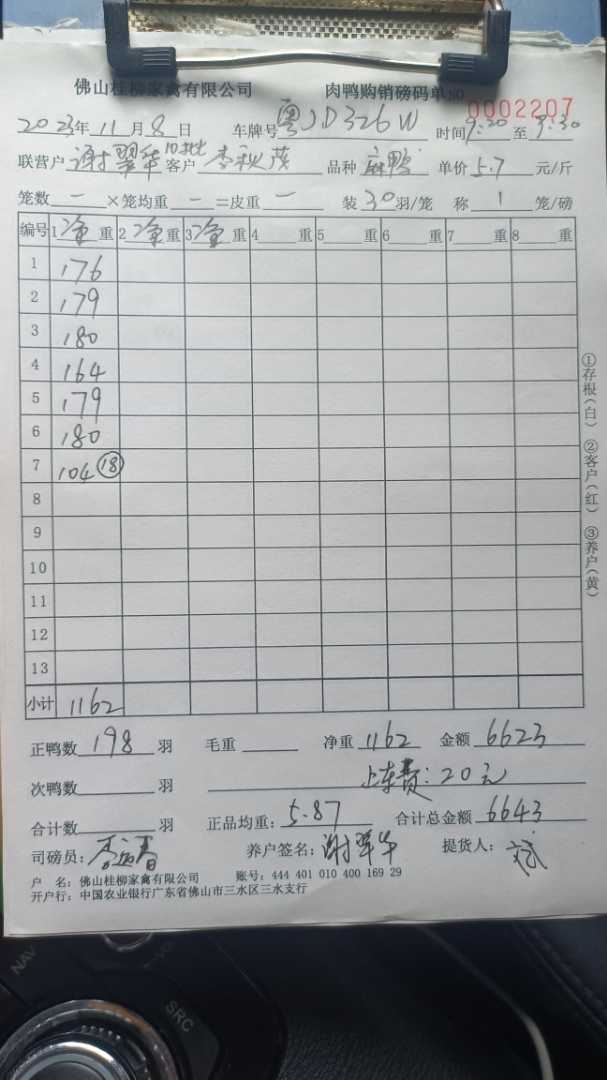 佛山桂柳家禽有限公司 肉鸭购销磅码单 0002207
2023年11月8日 车牌号 粤JD326W 时间 9:20 至 9:30
联营户 谢翠华 10批 客户 李秋茂 品种 麻鸭 单价 5.7 元/斤
笼数 一 ×笼均重 一 =皮重 一 装 30 羽/笼 称 1 笼/磅
编号 1 净 重 2 净 重 3 净 重 4 重 5 重 6 重 7 重 8 重
1 176
2 179
3 180
4 164
5 179
6 180
7 104 18
8
9
10
11
12
13
小计 1162
正鸭数 198 羽 毛重 净重 1162 金额 6623
次鸭数 羽 上车费：20元
合计数 羽 正品均重： 5.87 合计总金额 6643
司磅员： 养户签名： 谢翠华 提货人：
户 名：佛山桂柳家禽有限公司 账号：444 401 010 400 169 29
开户行：中国农业银行广东省佛山市三水区三水支行
①存根（白） ②客户（红） ③养户（黄）
NAV
SRC